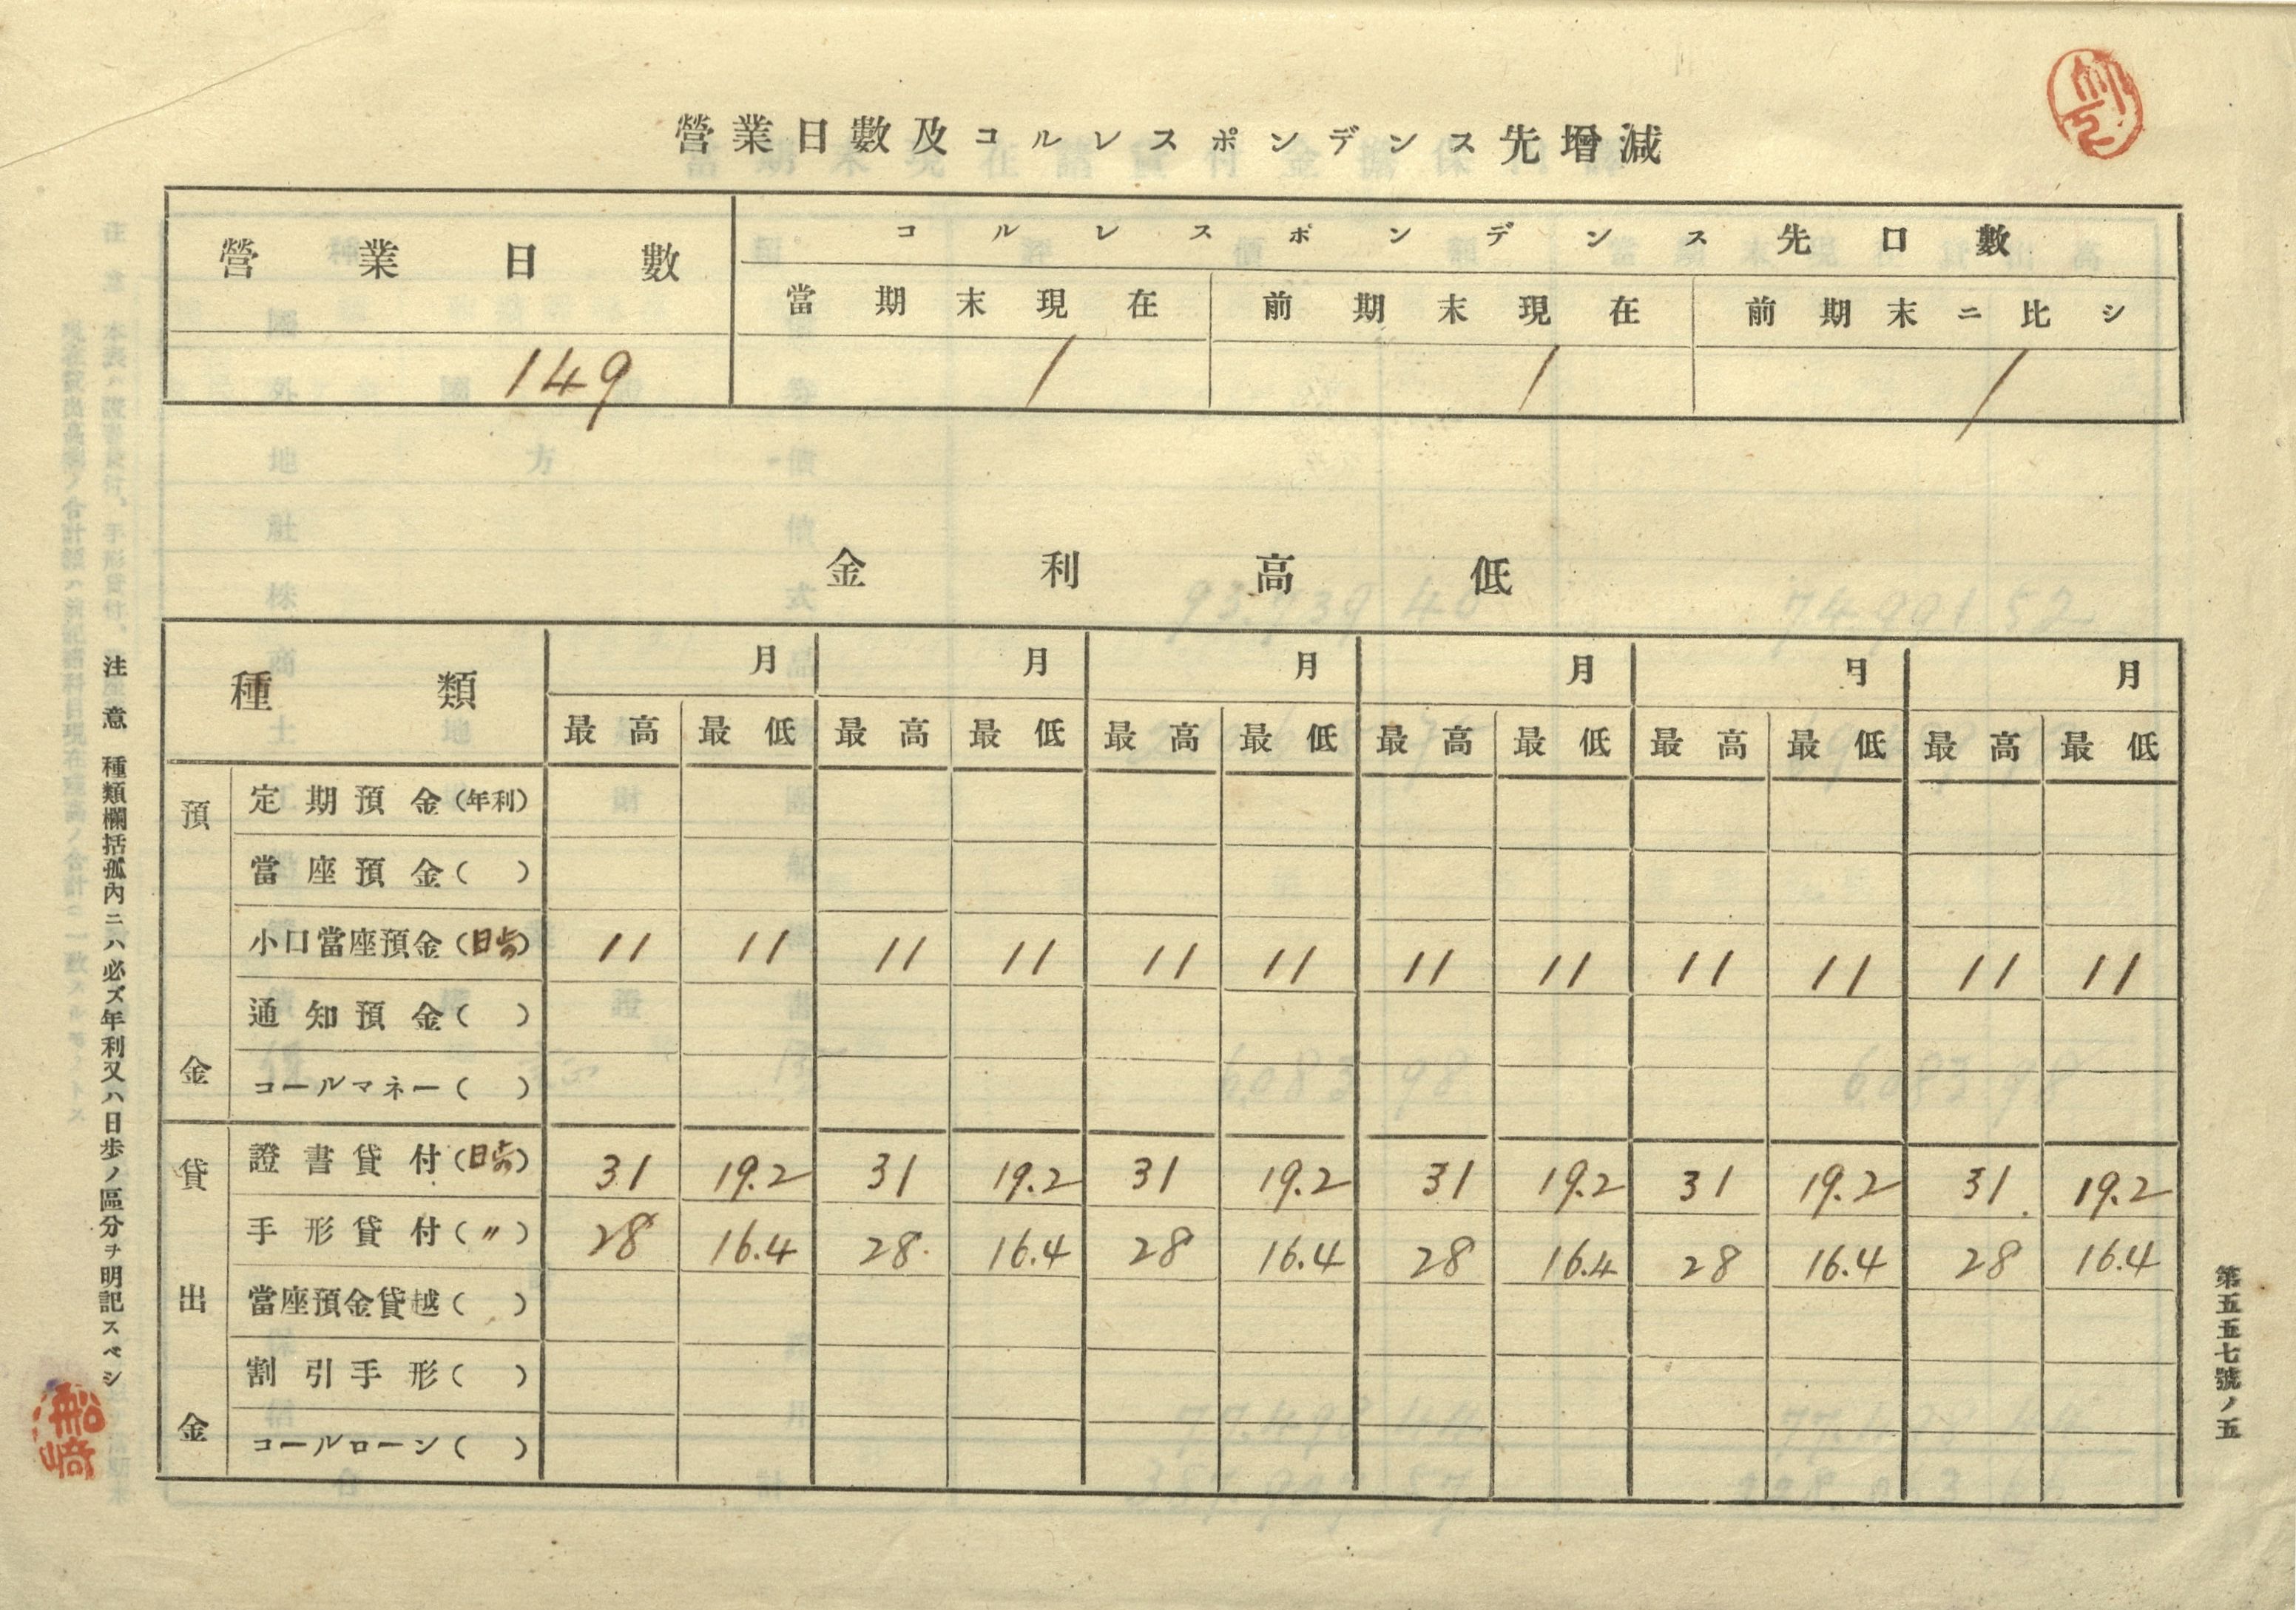 營業日數及コルレスポンデンス先增減
營業日數
コルレスポンデンス先口數
當期末現在 前期末現在 前期末ニ比シ
149 / / /
金利高低
種類 月 月 月 月 月 月
最高 最低 最高 最低 最高 最低 最高 最低 最高 最低 最高 最低
預金
定期預金(年利)
當座預金( )
小口當座預金(日歩) 11 11 11 11 11 11 11 11 11 11 11 11
通知預金( )
コールマネー( )
貸出金
證書貸付(日歩) 31 19.2 31 19.2 31 19.2 31 19.2 31 19.2 31 19.2
手形貸付(〃) 28 16.4 28 16.4 28 16.4 28 16.4 28 16.4 28 16.4
當座預金貸越( )
割引手形( )
コールローン( )
注意 種類欄括孤內ニハ必ズ年利又ハ日歩ノ區分ヲ明記スベシ
第五五七號ノ五
船崎